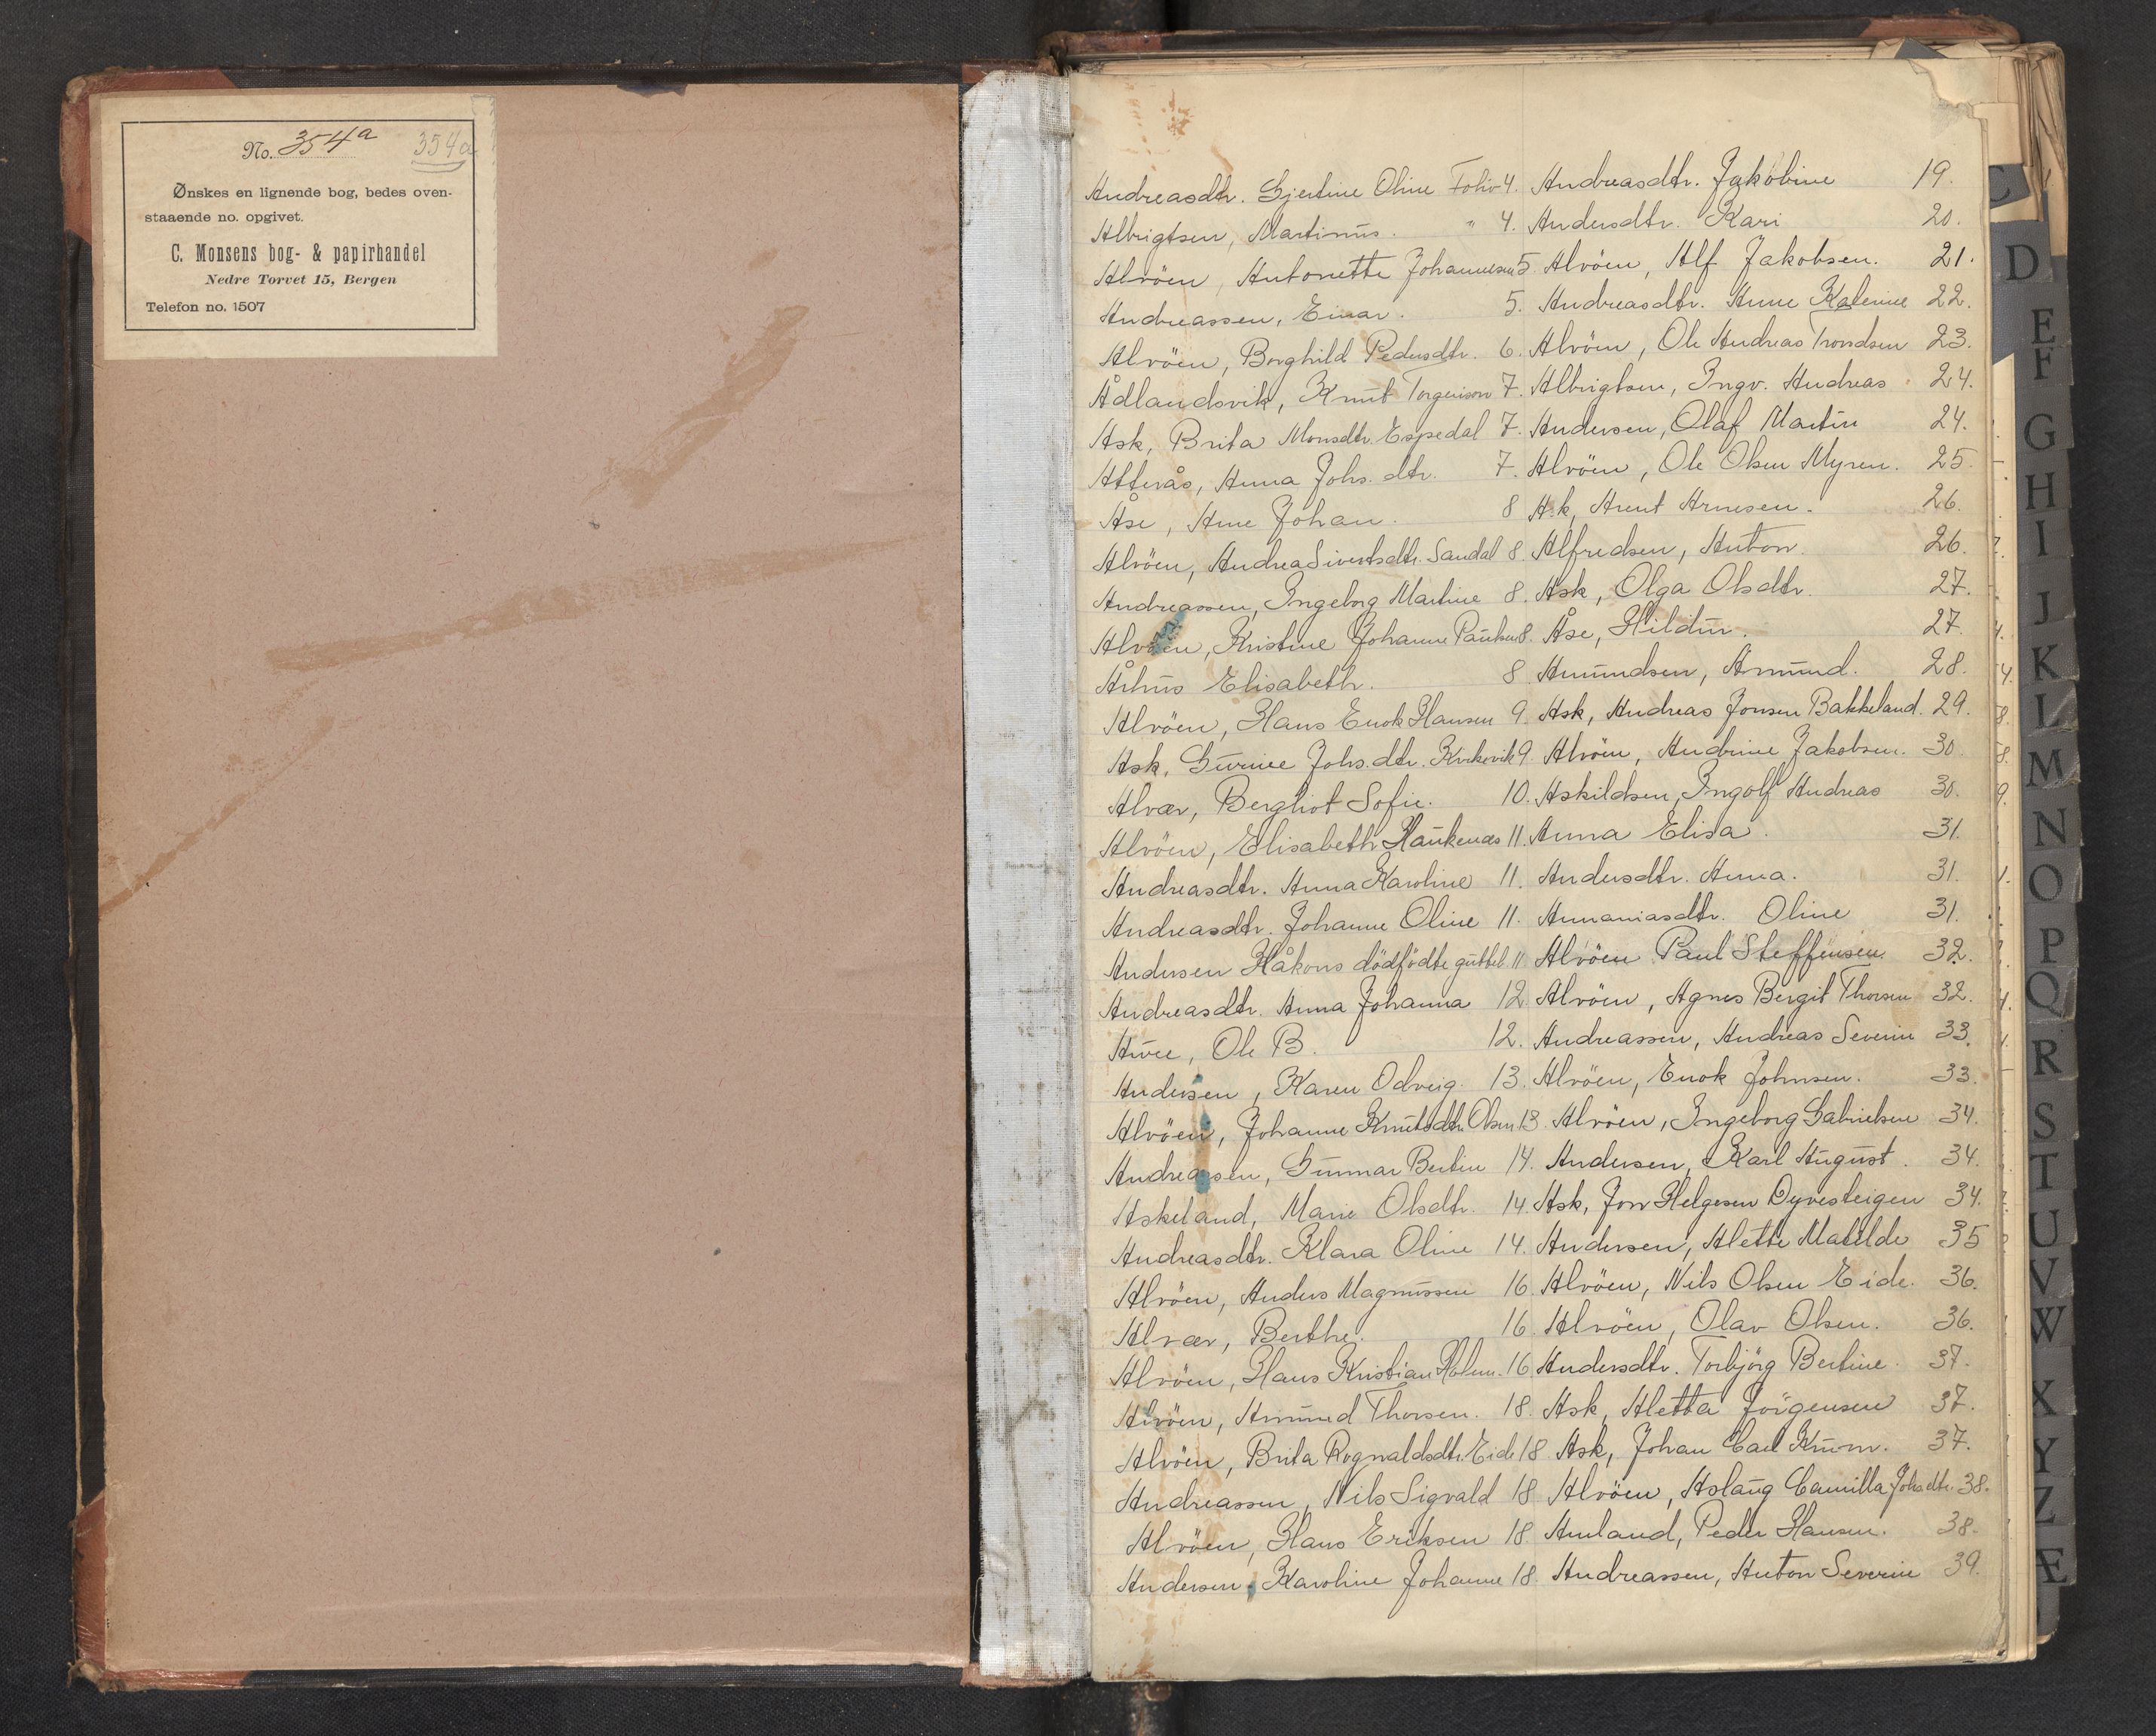 No. 354a 354a
Ønskes en lignende bog, bedes oven-
staaende no. opgivet.
C. Monsens bog- & papirhandel
Nedre Torvet 15, Bergen
Telefon no. 1507
Andreasdtr. Gjertine Oline Folio 4.
Albrigtsen, Martinus. " 4.
Alvöen, Antonette Johannesen 5.
Andreassen, Einar. 5.
Alvöen, Borghild Pedersdtr. 6.
Ådlandsvik, Knut Torgerison 7.
Ask, Brita Monsdtr. Espedal 7.
Atterås, Anna Johs. dtr. 7.
Åse, Arne Johan. 8
Alvöen, Andrea Sivertsdtr. Sandal 8.
Andreassen, Ingeborg Martine 8.
Alvöen, Kristine Johanne Paulsen 8.
Århus Elisabeth. 8
Alvöen, Hans Enok Hansen 9.
Ask, Gurine Johs. dtr. Krekevik 9.
Alvær, Bergliot Sofie. 10.
Alvöen, Elisabeth Haukenæs 11.
Andreasdtr. Anna Karoline 11.
Andreasdtr. Johanne Oline 11.
Andersen Håkons dödfödte gutteb 11
Andreasdtr. Anna Johanna 12.
Ole B. 12.
Andersen, Karen Odveig. 13.
Alvöen, Johanne Knutsdtr. Olsen 13.
Andreassen, Gunnar Bertin 14.
Askeland, Marie Olsdtr. 14.
Andreasdtr. Klara Oline 14.
Alvöen, Anders Magnussen 16.
Alvær, Berthe. 16.
Alvöen, Hans Kristian Holm. 16.
Alvöen, Amund Thorsen. 18.
Alvöen, Brita Rognaldsdtr. Eide 18
Andreassen, Nils Sigvald 18
Alvöen, Hans Eriksen 18.
Andersen, Karoline Johanne 18.
Andreasdtr. Jakobine 19.
Andersdtr. Kari 20.
Alvöen, Alf Jakobsen. 21.
Andreasdtr. Anne Katerine 22.
Alvöen, Ole Andreas Trondsen 23.
Albrigtsen, Ingv. Andreas 24.
Andersen, Olaf Martin 24.
Alvöen, Ole Olsen Myren. 25.
Ask, Arent Arnesen. 26.
Alfredsen, Anton. 26.
Ask, Olga Olsdtr. 27.
Åse, Hildur. 27.
Amundsen, Amund. 28.
Ask, Andreas Jonsen Bakkeland. 29.
Alvöen, Andrine Jakobsen. 30.
Askildsen, Ingolf Andreas 30.
Anna Elisa. 31.
Andersdtr. Anna. 31.
Annaniasdtr. Oline 31.
Alvöen Paul Steffensen. 32.
Alvöen, Agnes Bergit Thorsen 32.
Andreassen, Andreas Severin 33.
Alvöen, Enok Johnsen. 33.
Alvöen, Ingeborg Gabrielsen 34.
Andersen, Karl August. 34.
Ask, Jon Helgesen Dyvesteigen 34.
Andersen, Alette Matilde 35
Alvöen, Nils Olsen Eide. 36.
Alvöen, Olav Olsen. 36.
Andersdtr. Torbjörg Bertine. 37.
Ask, Aletta Jörgensen 37.
Ask, Johan Carl Krum. 37.
Alvöen, Aslaug Camilla Johsdtr. 38.
Amland, Peder Hansen. 38.
Andreassen, Anton Severin 39.
C
D
E
F
G
H
I
J
K
L
M
N
O
P
Q
R
S
T
U
V
W
X
Y
Z
Æ